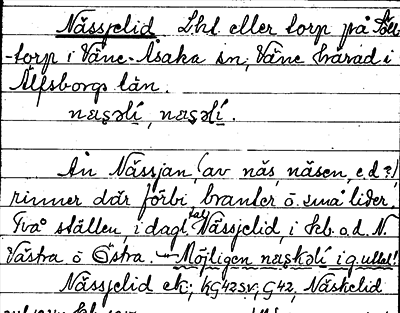 Nässjelid Lht. eller torp på Åll-
-torp i Väne-Åsaka sn, Väne härad i
Älfsborgs län.
nasəlí, nasəlí.
Än Nässjan, (av näs, näsen, e.d.?)
rinner där förbi branter o. små lider.
Två ställen, i dagl. tal Nässjelid, i kb. o.d. N.
Västra o Östra. - Möjligen naskəlí i g. uttal!
Nässjelid ek; KG42SV; G42, Näskelid